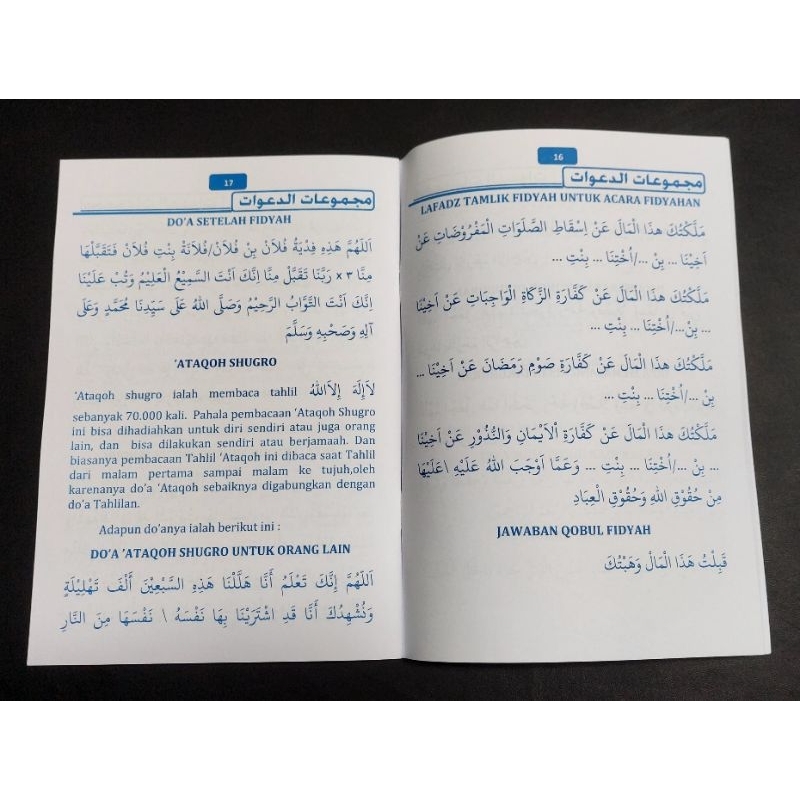 16
مجموعات الدعوات
LAFADZ TAMLIK FIDYAH UNTUK ACARA FIDYAHAN
مَلَّكْتُكَ هذَا الْمَالَ عَنْ اِسْقَاطِ الصَّلَوَاتِ الْمَفْرُوْضَاتِ عَنْ
اَخِيْنَا ... بِنْ .../اُخْتِنَا ... بِنْتِ ...
مَلَّكْتُكَ هذَا الْمَالَ عَنْ كَفَّارَةِ الزَّكَاةِ الْوَاجِبَاتِ عَنْ اَخِيْنَا
... بِنْ.../اُخْتِنَا ... بِنْتِ ...
مَلَّكْتُكَ هذَا الْمَالَ عَنْ كَفَّارَةِ صَوْمِ رَمَضَانَ عَنْ اَخِيْنَا ...
بِنْ .../اُخْتِنَا ... بِنْتِ ...
مَلَّكْتُكَ هذَا الْمَالَ عَنْ كَفَّارَةِ الْاَيْمَانِ وَالنُّذُوْرِ عَنْ اَخِيْنَا
... بِنْ .../اُخْتِنَا ... بِنْتِ ... وَعَمَّا اَوْجَبَ اللهُ عَلَيْهِ \عَلَيْهَا
مِنْ حُقُوْقِ اللهِ وَحُقُوْقِ الْعِبَادِ
JAWABAN QOBUL FIDYAH
قَبِلْتُ هَذَا الْمَالْ وَهَبْتُكَ
17
مجموعات الدعوات
DO'A SETELAH FIDYAH
اَللَّهُمَّ هَذِهِ فِدْيَةُ فُلاَنْ بِنْ فُلاَنْ/فُلاَنَةْ بِنْتِ فُلاَنْ فَتَقَبَّلْهَا
مِنَّا ×٣ رَبَّنَا تَقَبَّلْ مِنَّا اِنَّكَ اَنْتَ السَّمِيْعُ الْعَلِيْمُ وَتُبْ عَلَيْنَا
اِنَّكَ اَنْتَ التَّوَّابُ الرَّحِيْمُ وَصَلَّى اللهُ عَلَى سَيِّدِنَا مُحَمَّدٍ وَعَلَى
آلِهِ وَصَحْبِهِ وَسَلَّمَ
'ATAQOH SHUGRO
'Ataqoh shugro ialah membaca tahlil لاَإِلَهَ إِلاَاللهُ
sebanyak 70.000 kali. Pahala pembacaan 'Ataqoh Shugro
ini bisa dihadiahkan untuk diri sendiri atau juga orang
lain, dan bisa dilakukan sendiri atau berjamaah. Dan
biasanya pembacaan Tahlil 'Ataqoh ini dibaca saat Tahlil
dari malam pertama sampai malam ke tujuh,oleh
karenanya do'a 'Ataqoh sebaiknya digabungkan dengan
do'a Tahlilan.
Adapun do'anya ialah berikut ini :
DO'A 'ATAQOH SHUGRO UNTUK ORANG LAIN
اَللَّهُمَّ إِنَّكَ تَعْلَمُ أَنَّا هَلَّلْنَا هَذِهِ السَّبْعِيْنَ أَلْفَ تَهْلِيْلَةٍ
وَنُشْهِدُكَ أَنَّا قَدِ اشْتَرَيْنَا بِهَا نَفْسَهُ \ نَفْسَهَا مِنَ النَّارِ